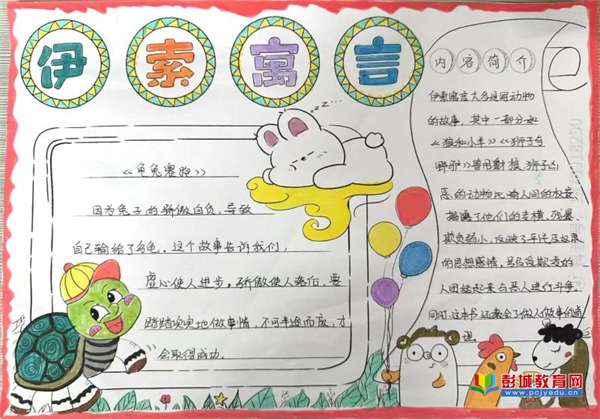 伊索寓言
zzz...
《龟兔赛跑》
因为兔子的骄傲自负,导致
自己输给了乌龟。这个故事告诉我们,
虚心使人进步。骄傲使人落后。要
踏踏实实地做事情,不可半途而废,才
会取得成功。
内容简介
伊索寓言大多是写动物
的故事,其中一部分如
《狼和小羊》《狮子与
野驴》等用豺狼、狮子比
恶的动物比喻人间的权贵,
揭露了他们的专横、残暴、
欺负弱小,反映了平民及奴隶
的思想感情,号召受欺凌的
人团结起来与恶人进行斗争。
同时,这本书还教会了做人做事的道
理。
彭城教育网
www.pcjyedu.cn